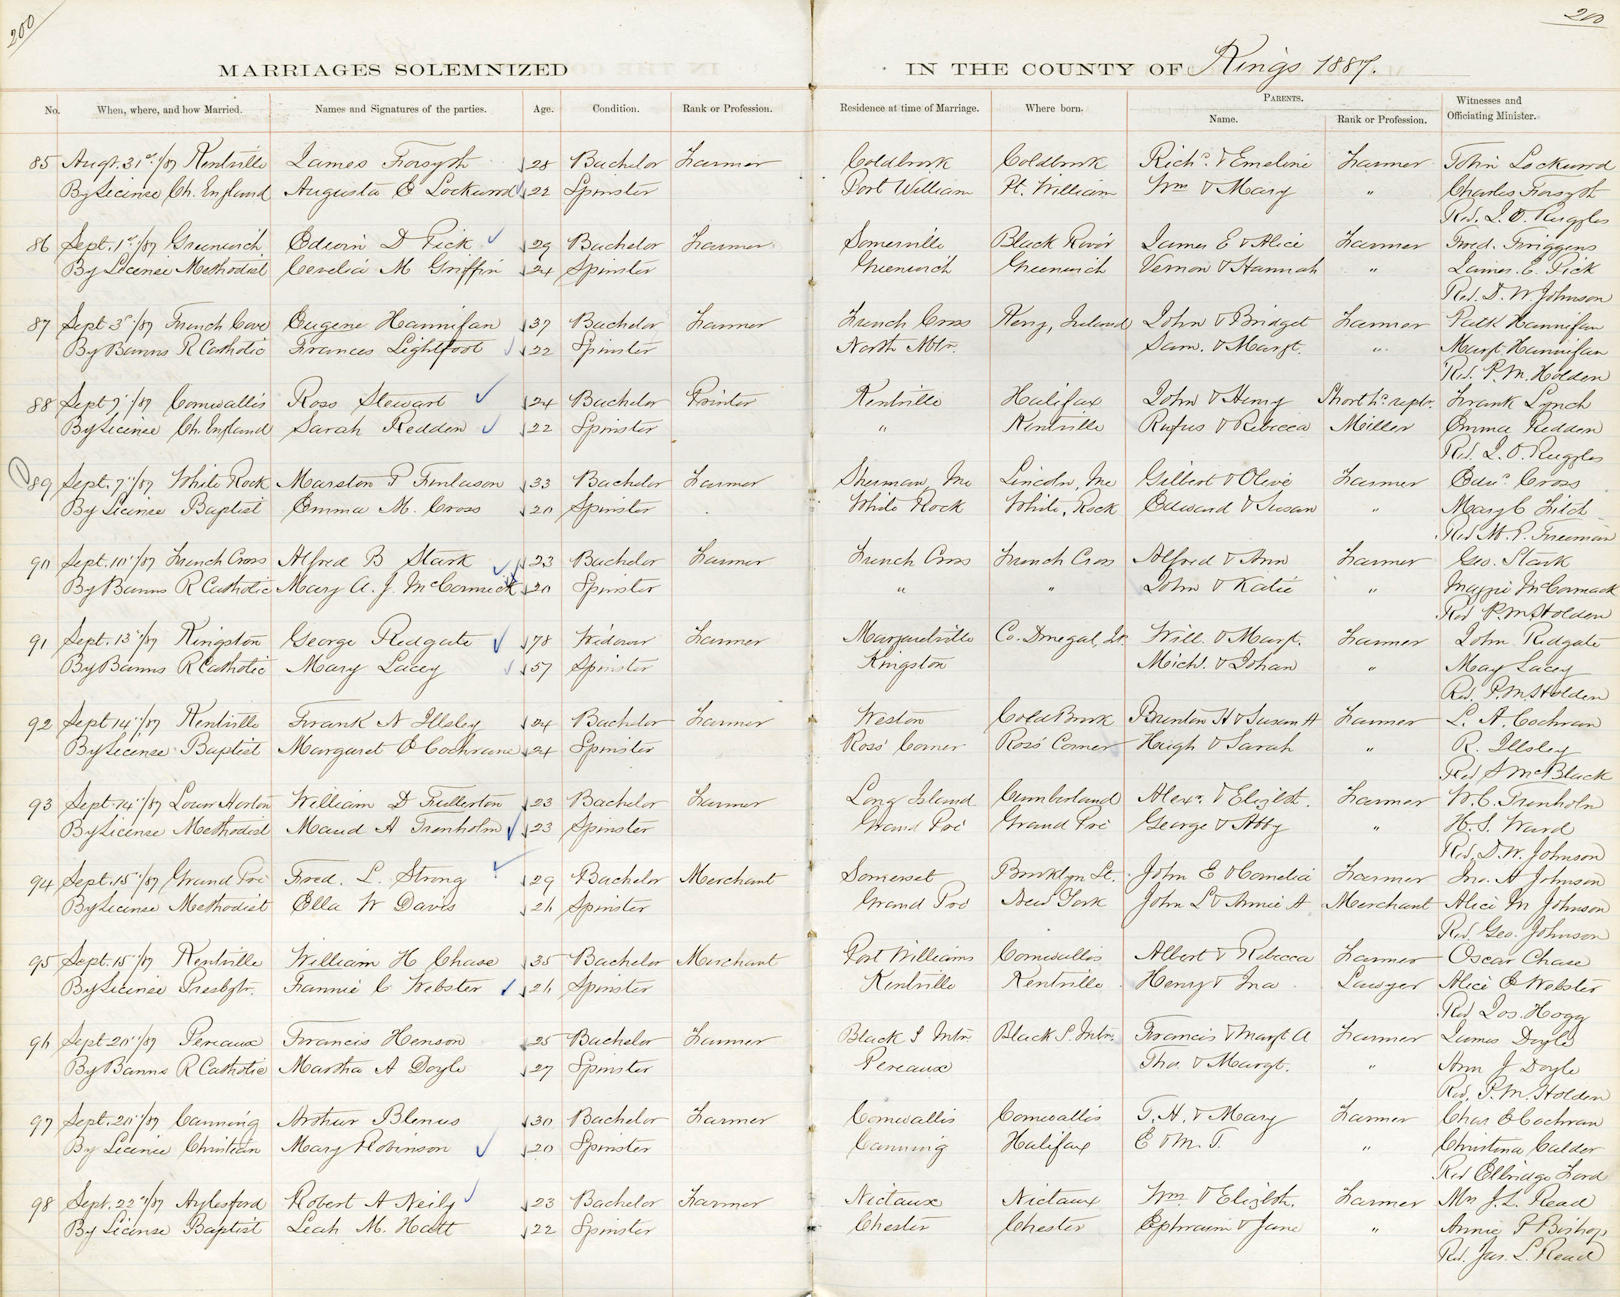 200
200
MARRIAGES SOLEMNIZED IN THE COUNTY OF Kings 1887.
No. When, where, and how Married. Names and Signatures of the parties. Age. Condition. Rank or Profession. Residence at time of Marriage. Where born. PARENTS. Name. Rank or Profession. Witnesses and Officiating Minister.
85 Augt. 31st/87 Kentville James Forsyth 28 Bachelor Farmer Coldbrook Coldbrook Richd. & Emeline Farmer John Lockwood
By License Ch. England Augusta E Lockwood 22 Spinster Port William Pt. William Wm & Mary " Charles Forsyth
Rev. J. O. Ruggles
86 Sept. 1st/87 Greenwich Edwin D Pick 29 Bachelor Farmer Somerville Black River James E & Alice Farmer Fred. Friggens
By License Methodist Cevelia M Griffin 24 Spinster Greenwich Greenwich Vernon & Hannah " James. E. Pick
Rev. D. W Johnson
87 Sept 3rd/87 French Cove Eugene Hannifan 37 Bachelor Farmer French Cross Kerry, Ireland John & Bridget Farmer Patk Hannifan
By Banns R Catholic Frances Lightfoot 22 Spinster North Mtn. Sam. & Margt. " Margt Hannifan
Rev. P. M. Holden
88 Sept 7"/87 Cornwallis Ross Stewart 24 Bachelor Printer Kentville Halifax John & Henry Shorthd. reptr. Frank Lynch
By License Ch. England Sarah Redden 22 Spinster " Kentville Rufus & Rebecca Miller Emma Redden
Rev. J. O. Ruggles
89 Sept. 7"/87 White Rock Marston P Finlason 33 Bachelor Farmer Sherman, Me Lincoln, Me Gilbert & Olive Farmer Edwd. Cross
By License Baptist Emma M. Cross 20 Spinster White Rock White, Rock Edward & Susan " Mary C Fitch
Rev M. P. Freeman
90 Sept. 10"/87 French Cross Alfred B Stark 23 Bachelor Farmer French Cross French Cross Alfred & Ann Farmer Geo. Stark
By Banns R Catholic Mary A. J. McCormick 20 Spinster " " John & Katie " Maggie McCormack
Rev P. M Holden
91 Sept. 13"/87 Kingston George Redgate 78 Widower Farmer Margaretville Co. Donegal, Ir. Will. & Margt. Farmer John Redgate
By Banns R Catholic Mary Lacey 57 Spinster Kingston Michl. & Johan " May Lacey
Rev. P. M Holden
92 Sept 14"/87 Kentville Frank N Illsley 24 Bachelor Farmer Weston ColdBrook Brenton H & Susan A Farmer L. A. Cochran
By License Baptist Margaret E Cochrane 24 Spinster Ross' Corner Ross' Corner Hugh & Sarah " R. Illsley
Rev S McBlack
93 Sept. 14"/87 Lower Horton William D Fullerton 23 Bachelor Farmer Long Island Cumberland Alexr. & Elizbt. Farmer W. C. Trenholm
By License Methodist Maud A Trenholm 23 Spinster Grand Pré Grand Pré George & Abby " H. S. Ward
Rev. D. W. Johnson
94 Sept. 15"/87 Grand Pré Fred. L. Strong 29 Bachelor Merchant Somerset Brooklyn St. John E & Cornelia Farmer Jno. A Johnson
By License Methodist Ella W Davis 26 Spinster Grand Pré New York John L & Annie A Merchant Alice M Johnson
Rev. Geo. Johnson
95 Sept. 15"/87 Kentville William H Chase 35 Bachelor Merchant Port Williams Cornwallis Albert & Rebecca Farmer Oscar Chase
By License Presbytr. Fannie C Webster 26 Spinster Kentville Kentville Henry & Ina Lawyer Alice E Webster
Rev Jos. Hogg
96 Sept 20"/87 Pereaux Francis Henson 25 Bachelor Farmer Black S Mtn. Black S. Mtn. Francis & Margt A Farmer James Doyle
By Banns R Catholic Martha A Doyle 27 Spinster Pereaux Tho. & Margt. " Ann J Doyle
Rev. P. M. Holden
97 Sept. 20"/87 Canning Arthur Blenus 30 Bachelor Farmer Cornwallis Cornwallis T. H. & Mary Farmer Chas E Cochran
By License Christian Mary Robinson 20 Spinster Canning Halifax E & M. T. " Christina Calder
Rev Elbridge Ford
98 Sept. 22nd/87 Aylesford Robert A Neily 23 Bachelor Farmer Nictaux Nictaux Wm. & Elizbth. Farmer Mrs J. L. Read
By License Baptist Leah M. Hatt 22 Spinster Chester Chester Ephraim & Jane " Annie P Bishop
Rev. Jas. L. Read